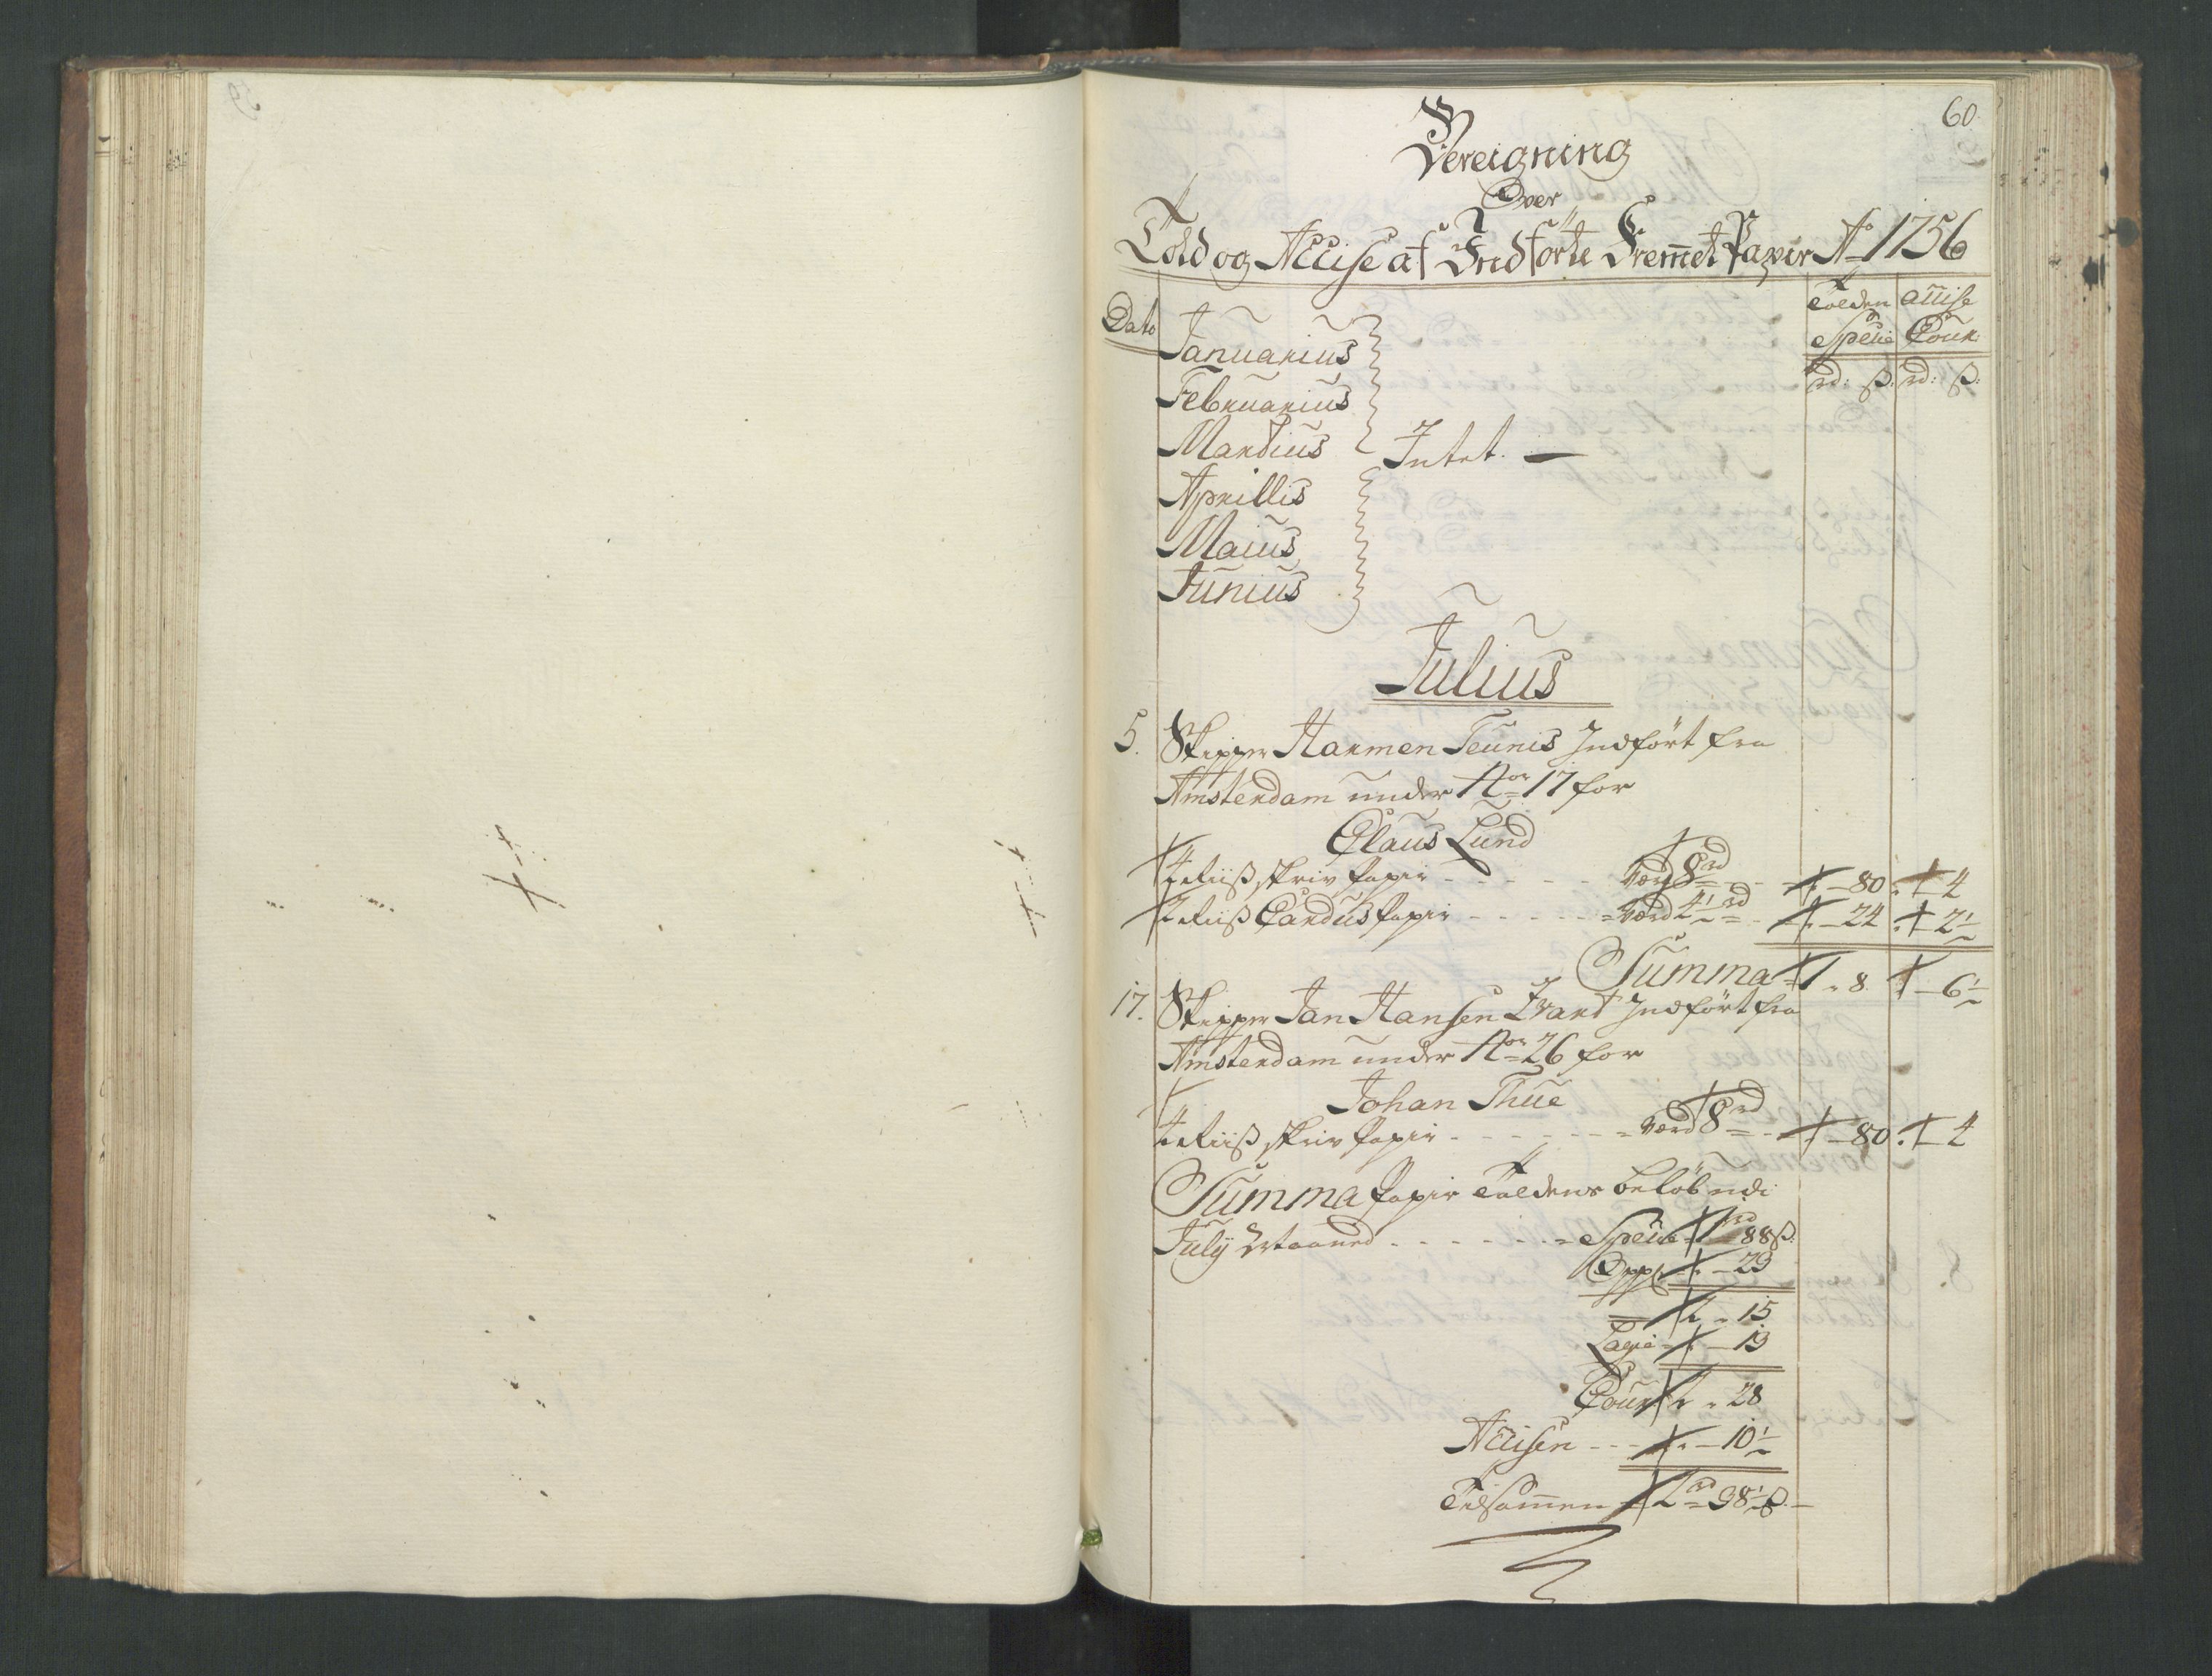 60.
Bereigning
Over
Told og Accise af Indförte Fremmet Papir Ao 1756
Dato
Tolden Accise
Specie Cour:
rd: ß: rd: ß:
Januarius
Februarius
Martius Intet. —
Aprillis
Maius
Junius
Julius
5. Skipper Harmen Teunis Indfört fra
Amsterdam under Nor 17 for
Claus Lund
4 Riiß skriv Papir - - - - - værd 8 rd - - 80 4
Riiß Cardus Papir - - - - - værd 4½ rd - - 24 2½
Summa 1 „ 8. 6½
17. Skipper Jan Hansen Indfört fra
Amsterdam under Nor 26 for
Johan Thue
4 Riiß skriv Papir - - - - - - værd 8 rd - - 80. 4
Summa Papir Toldens beløb udi
July Maaned - - - - - - Specie 1 rd 88 ß.
29
2 „ 15
Lagie 13
Cour 2 „ 28
Accisen - - - 10½
Tilsammen 2 rd 38½ ß. —